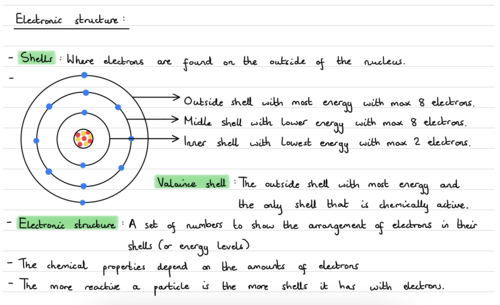 Electronic structure:
- Shells: Where electrons are found on the outside of the nucleus.
-
Outside shell with most energy with max 8 electrons.
Midle shell with lower energy with max 8 electrons.
Inner shell with lowest energy with max 2 electrons.
Valaince shell: The outside shell with most energy and
the only shell that is chemically active.
- Electronic structure: A set of numbers to show the arrangement of electrons in their
shells (or energy levels)
- The chemical properties depend on the amounts of electrons
- The more reactive a particle is the more shells it has with electrons.